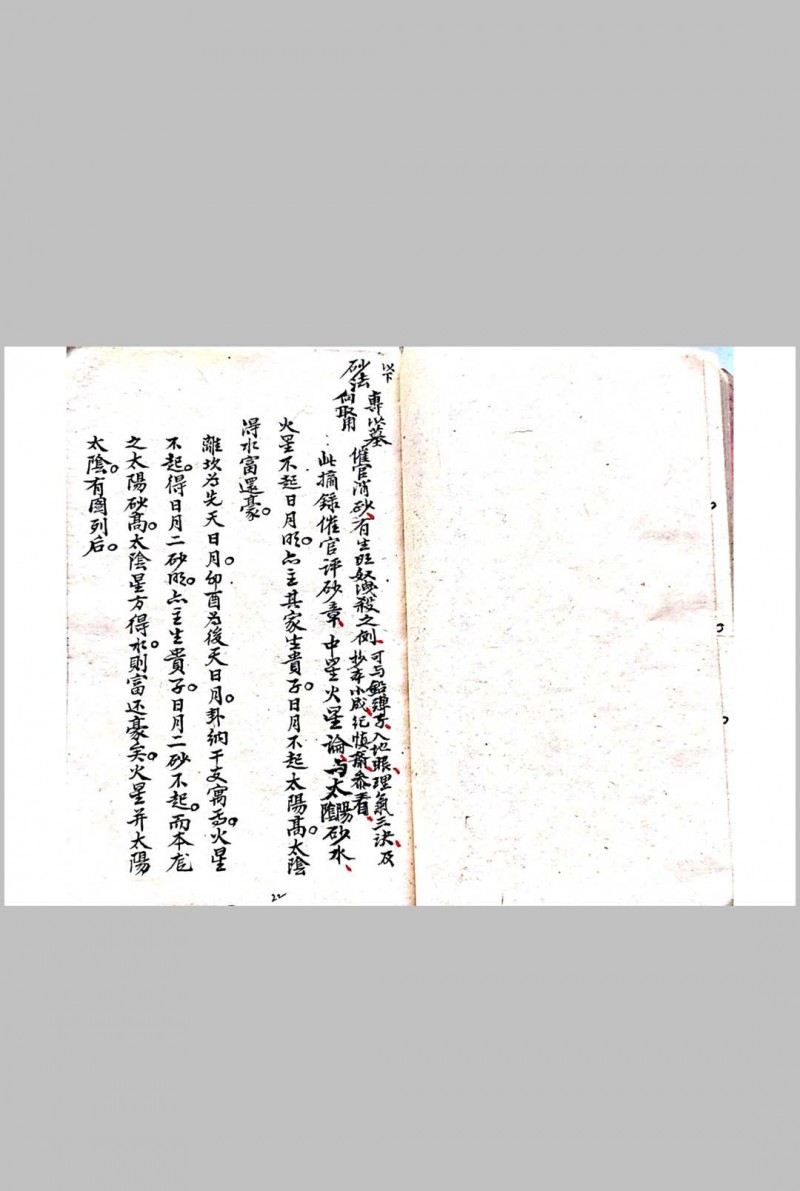 以下
專以墓
砂法
向取用
催官消砂、有生旺奴洩殺之例、
可与鉛彈子、入地眼理氣三訣、及
抄本小成、紀慎齋参看、
此摘錄催官評砂章、中星火星論、与太陽太陰砂水、
火星不起日月明。亦主其家生貴子。日月不起太陽高。太陰
得水富還豪。
離坎为先天日月。卯酉为後天日月。卦納干支寓焉。火星
不起。得日月二砂明。亦主生貴子。日月二砂不起。而本龙
之太陽砂高。太陰星方得水。則富还豪矣。火星并太陽
太陰。有图列后。
22